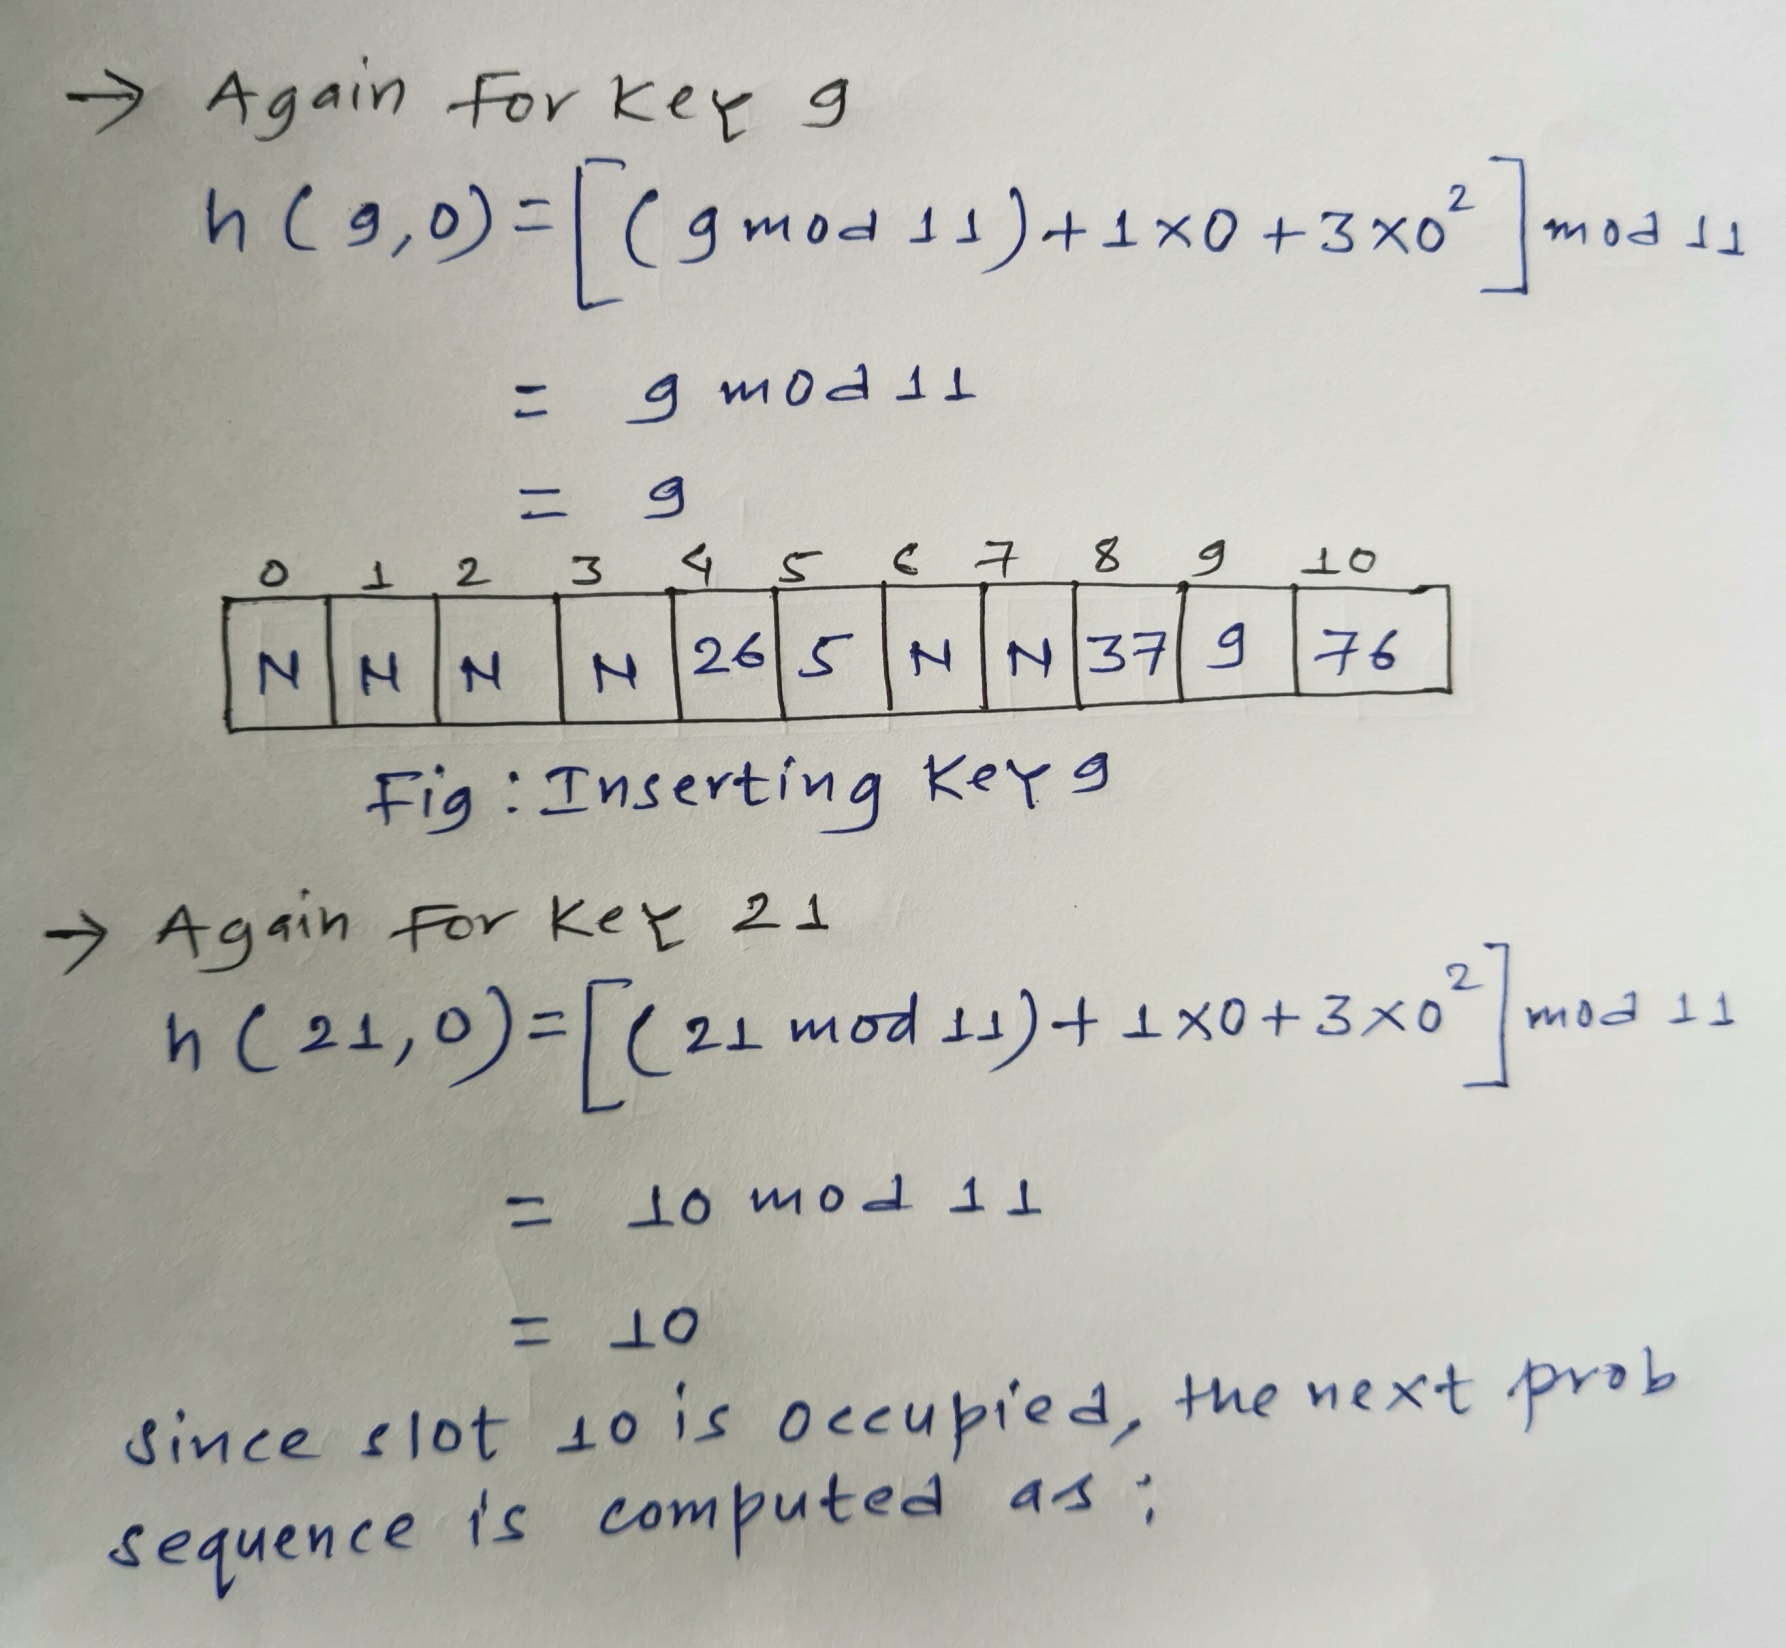 → Again for Key 9
h(9,0)=[(9 mod 11)+1×0+3×0²] mod 11
= 9 mod 11
= 9
0 1 2 3 4 5 6 7 8 9 10
N N N N 26 5 N N 37 9 76
Fig: Inserting Key 9
→ Again For Key 21
h(21,0)=[(21 mod 11)+1×0+3×0²] mod 11
= 10 mod 11
= 10
since slot 10 is occupied, the next prob
sequence is computed as;